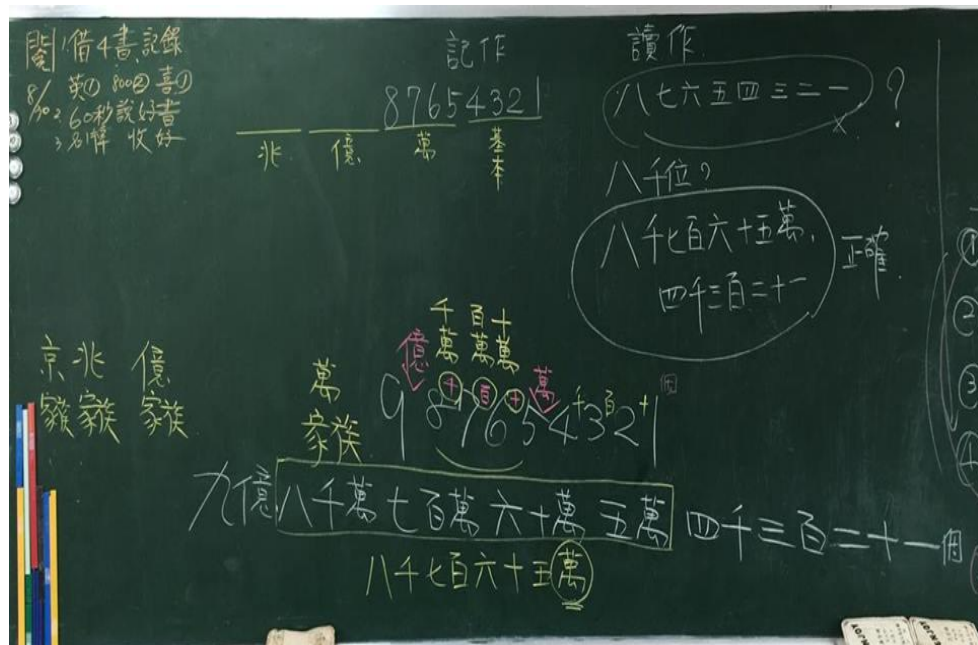 閱 1 借4書、記錄
8/30 英① 800② 喜①
2 60秒說好書
3 名牌 收好
記作
87654321
兆 億 萬 基本
讀作
八七六五四三二一 x ?
八千位？
八千七百六十五萬,
四千三百二十一
正確.
京家族 兆家族 億家族
萬家族
億 千萬 百萬 十萬 萬 千 百 十 個
千 百 十
987654321
九億八千萬七百萬六十萬五萬四千三百二十一個
八千七百六十五萬
①
②
③
④